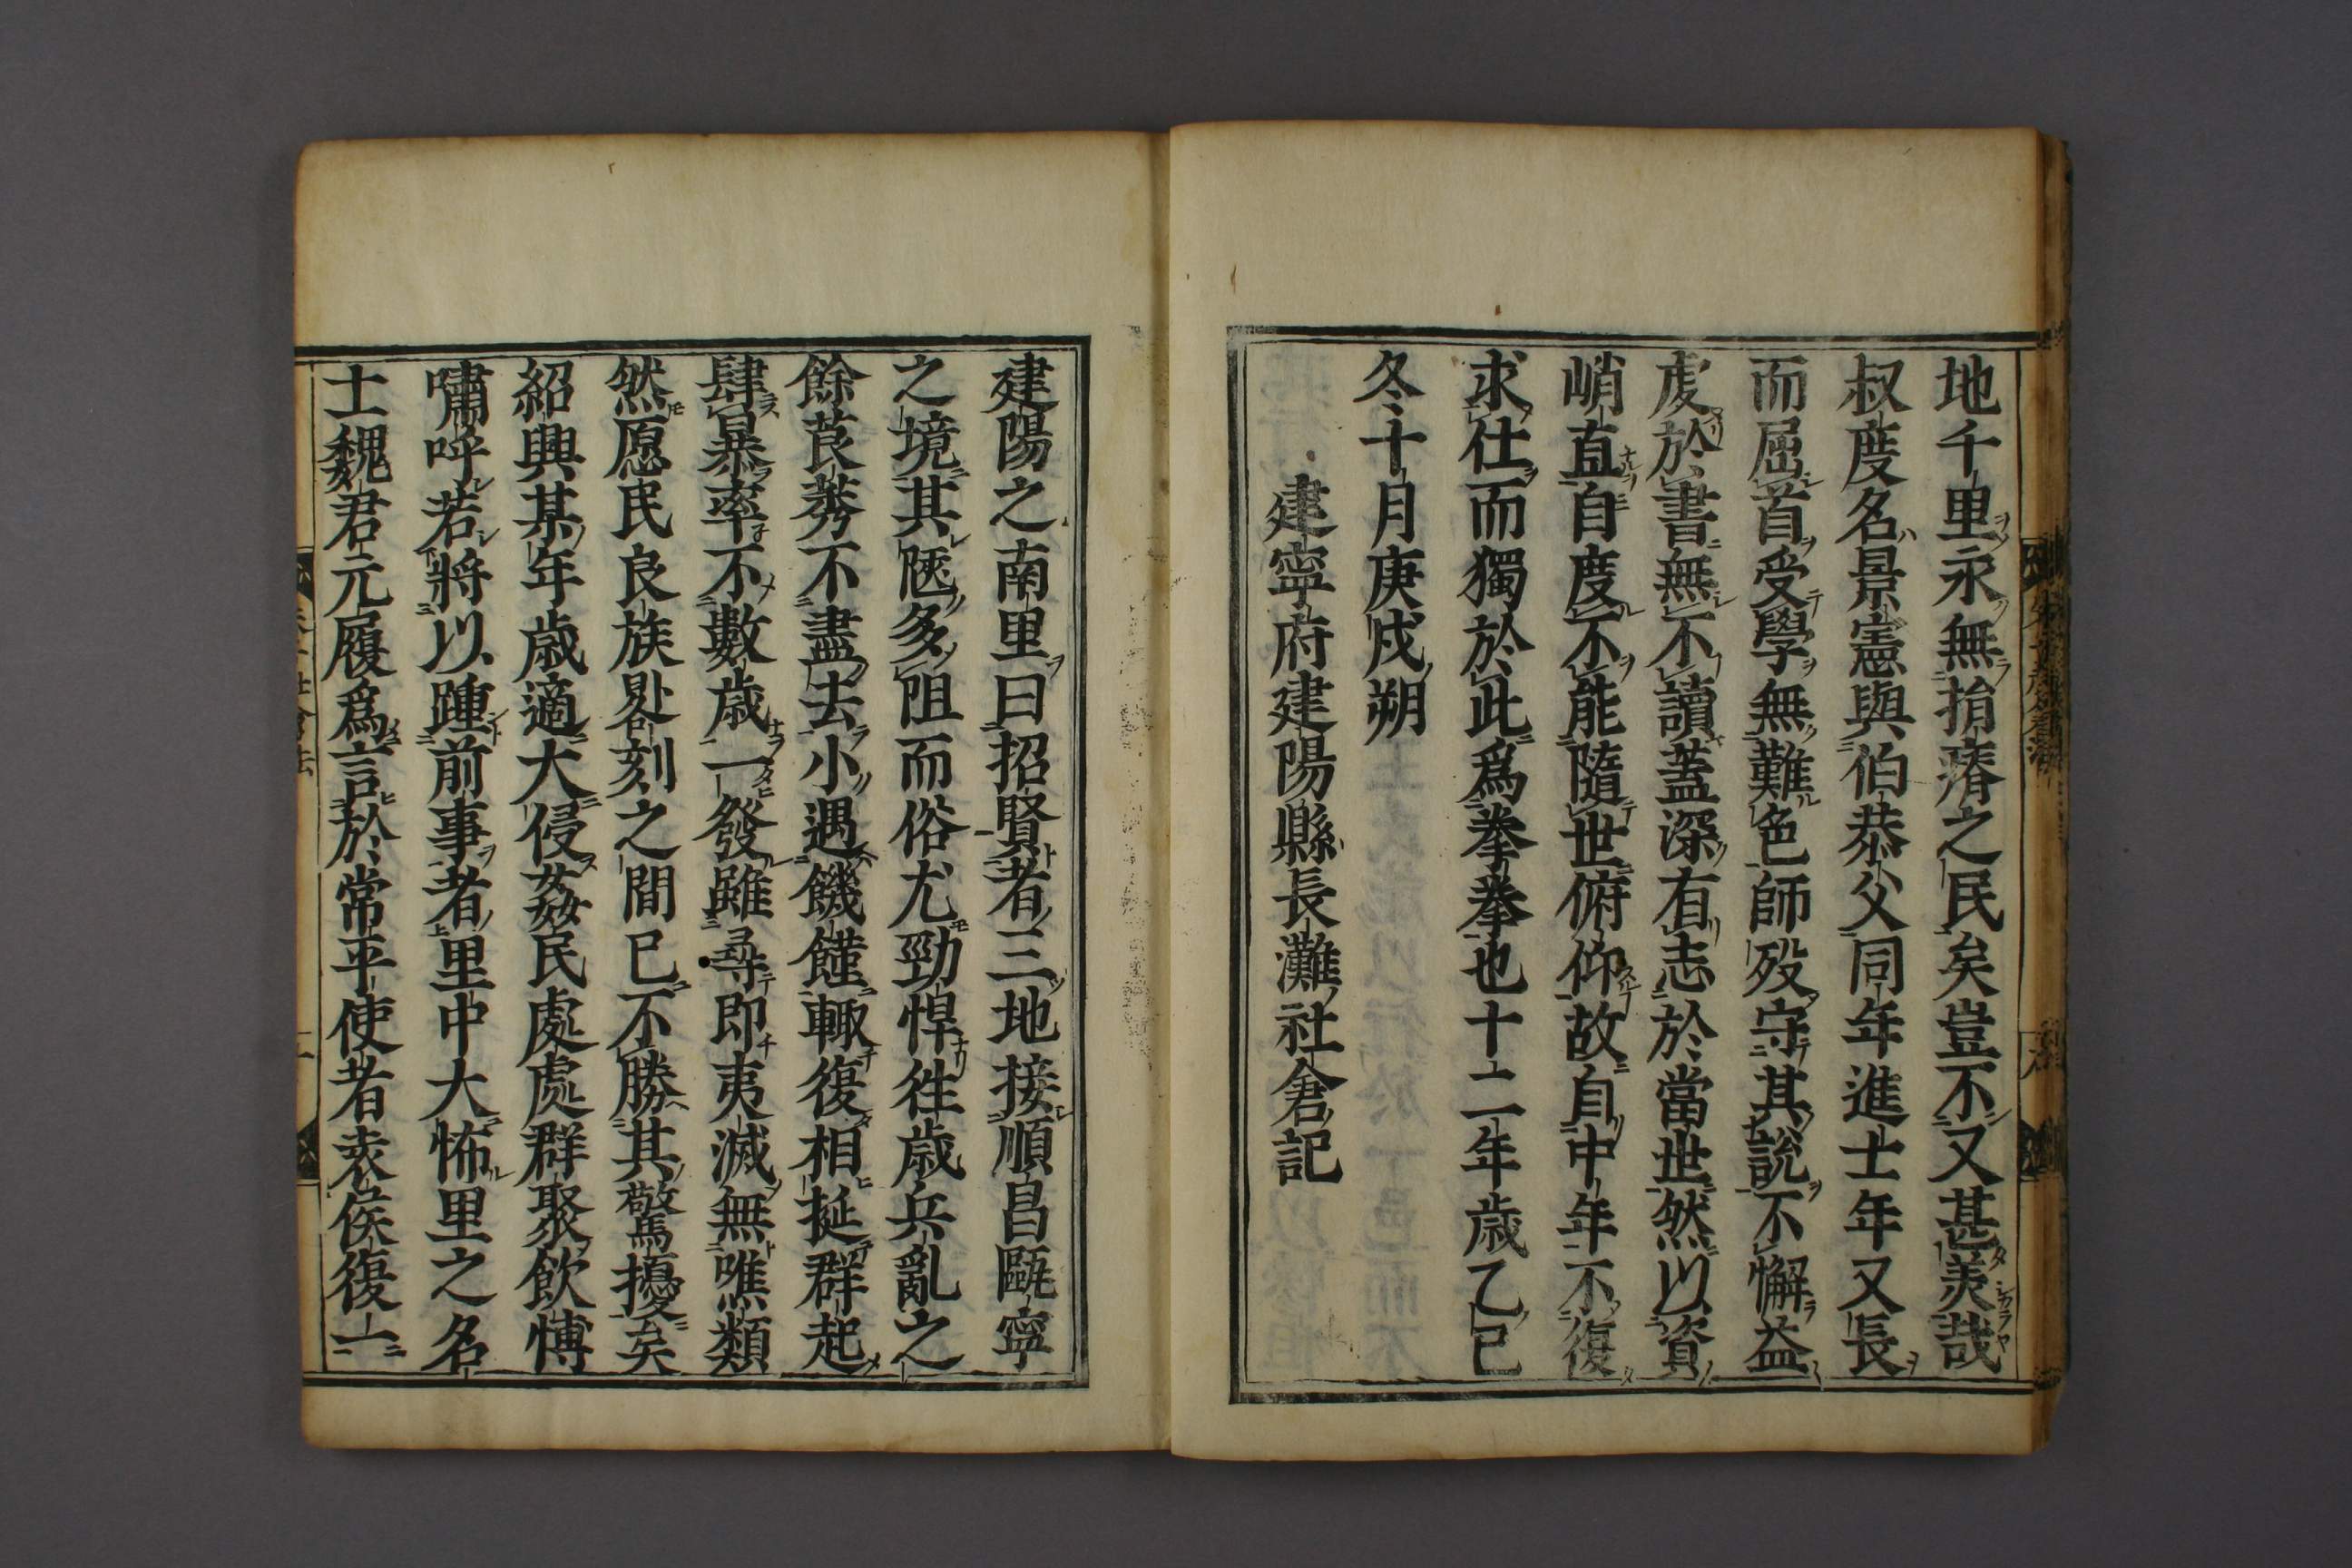 地千里永無捐瘠之民矣豈不又甚羙哉
叔度名景憲與伯恭父同年進士年又長
而屈首受學無難色師殁守其說不懈益
䖍於書無不讀蓋深有志於當世然以資
峭直自度不能隨世俯仰故自中年不復
求仕而獨於此爲拳拳也十二年歲乙巳
冬十月庚戍朔
建寧府建陽縣長灘社倉記
建陽之南里曰招賢者三地接順昌甌寧
之境其陿多阻而俗尤勁悍往歲兵亂之
餘莨莠不盡去小遇饑饉輙復相挻群起
肆暴率不數歲一發雖尋即夷滅無噍類
然愿民良族晷刻之間已不勝其驚擾矣
紹興某年歲適大侵姦民處處群聚飮博
嘯呼若將以踵前事者里中大怖里之名
士魏君元履爲言於常平使者袁侯復一